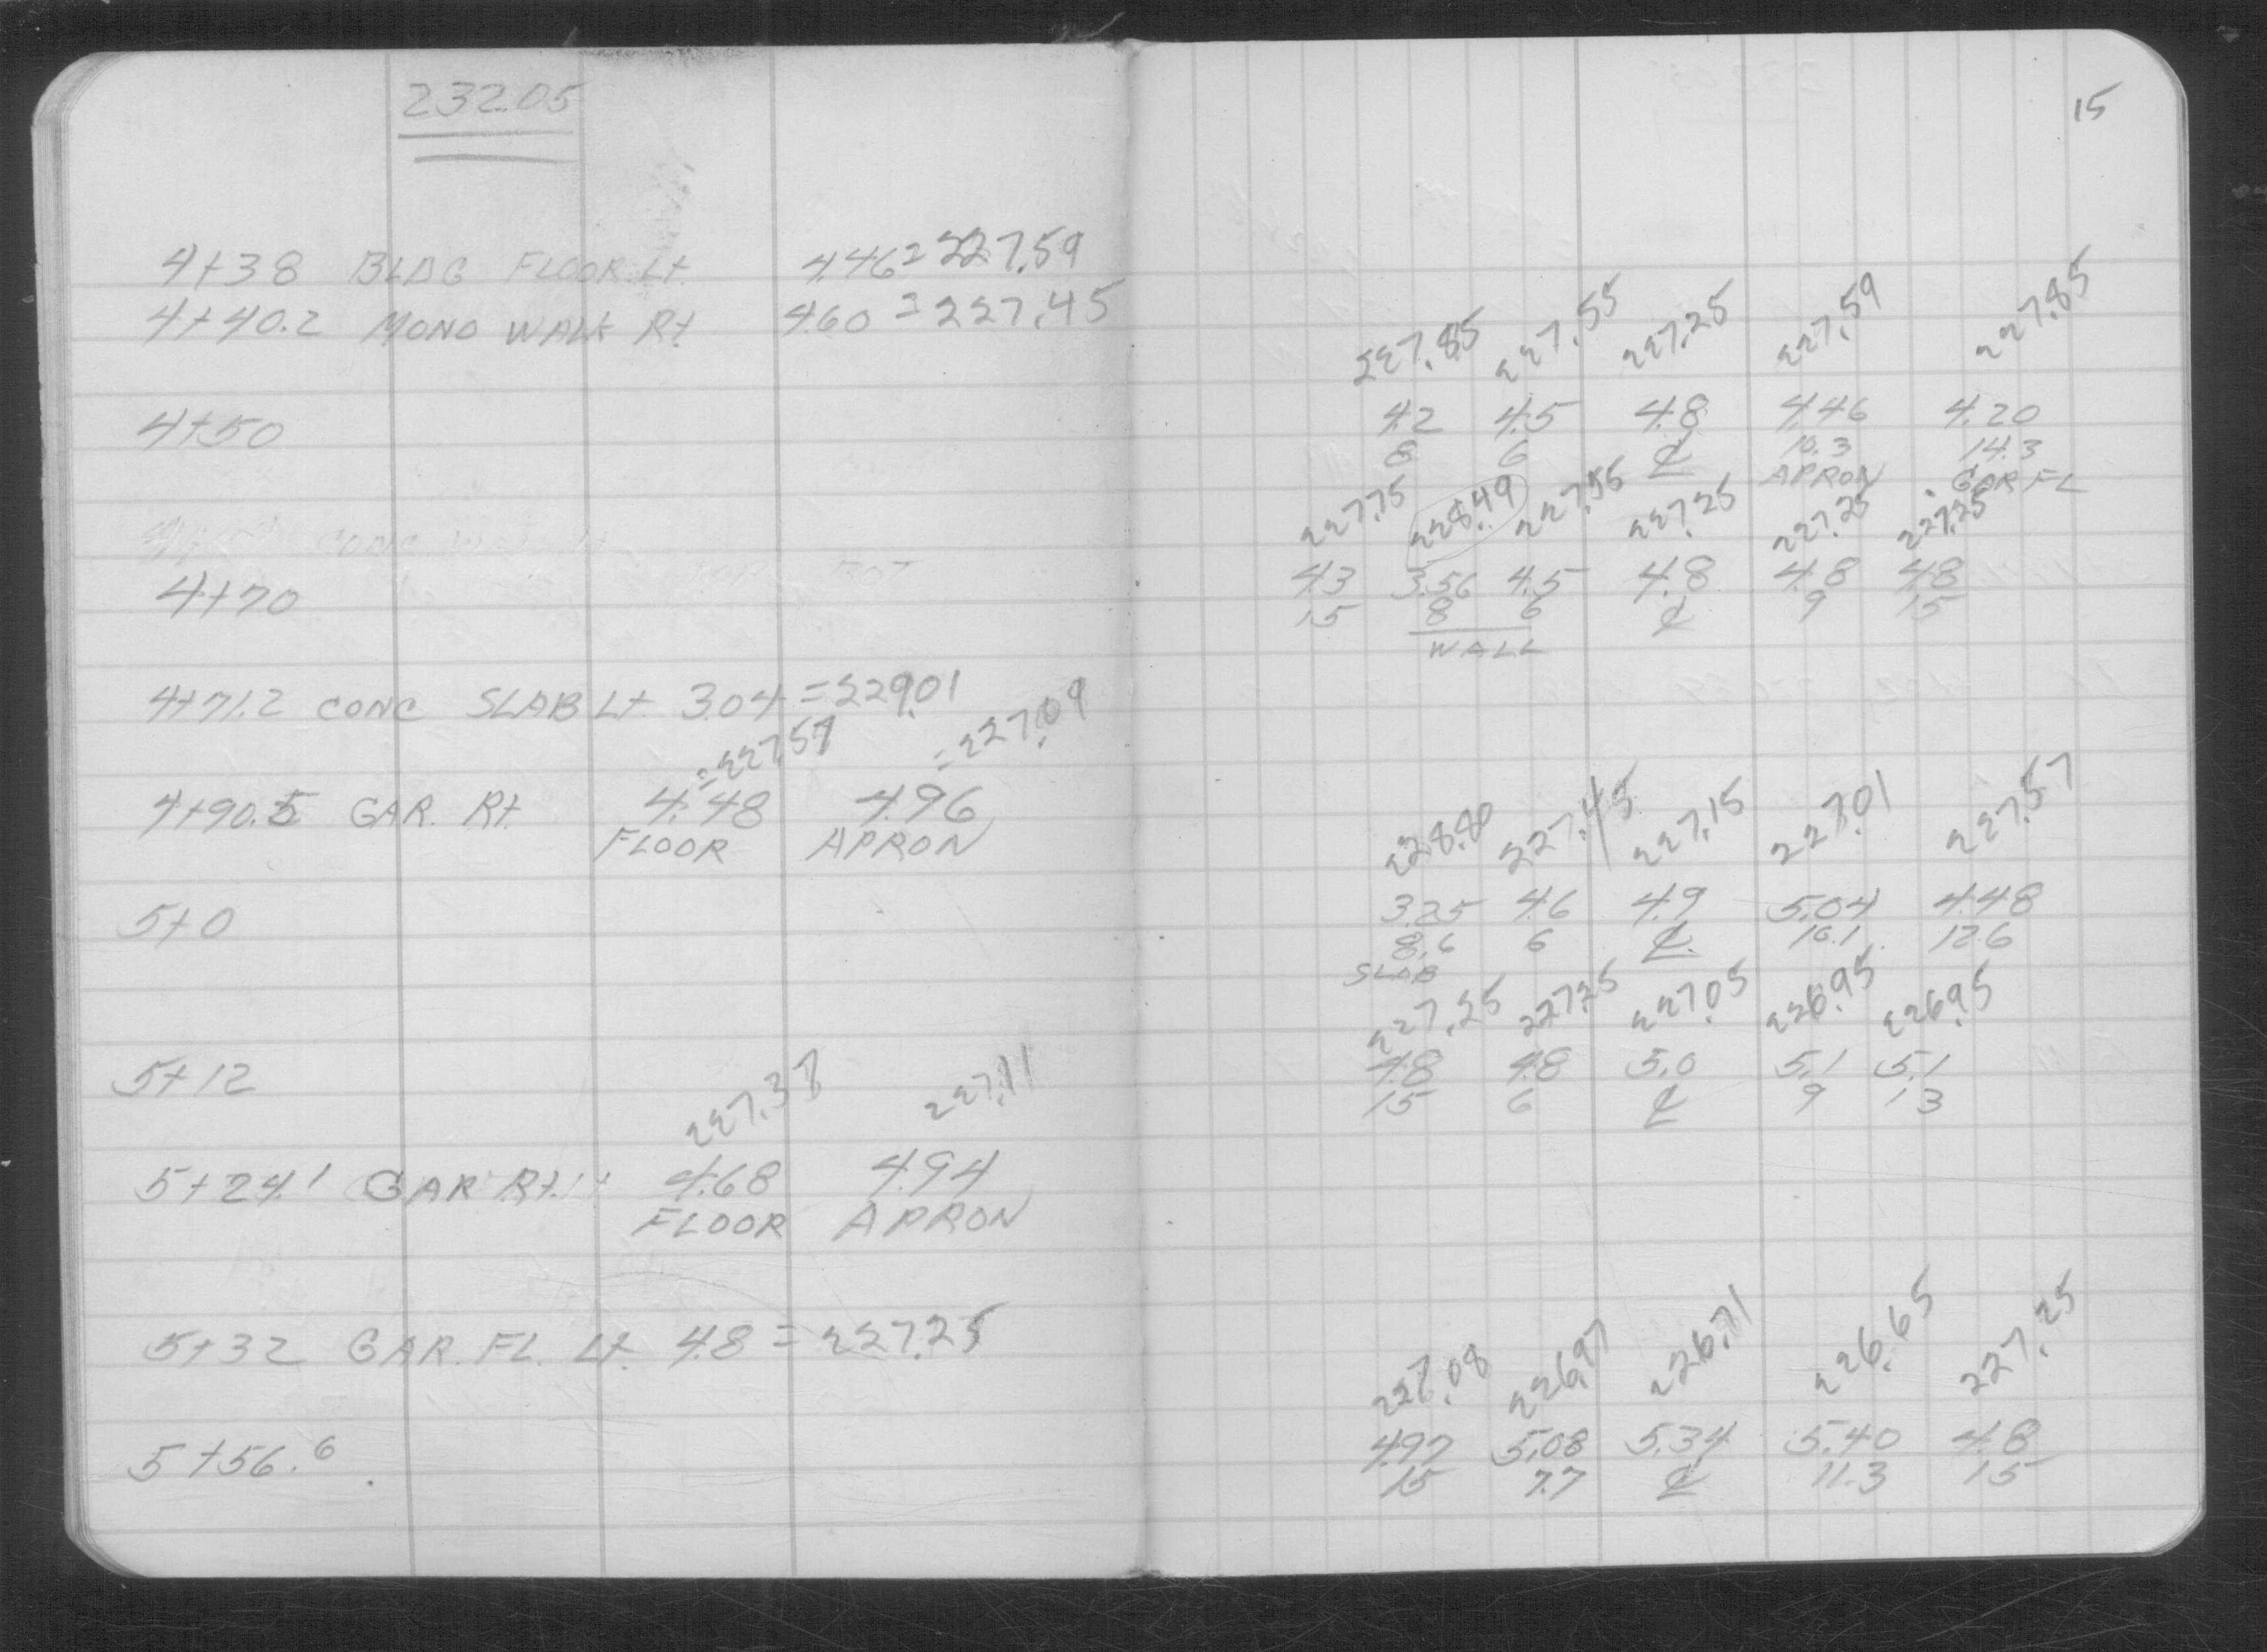 232.05
4+38 BLDG FLOOR Lt. 4.46 = 227.59
4+40.2 MONO WALK Rt 4.60 = 227.45
4+50
4+70
4+71.2 CONC SLAB Lt. 3.04 = 229.01
= 227.57 = 227.09
4+90.5 GAR. Rt 4.48 4.96
FLOOR APRON
5+0
5+12
227.37 227.11
5+24.1 GAR Rt. 4.68 4.94
FLOOR APRON
5+32 GAR. FL. Lt. 4.8 = 227.25
5+56.6
15
227.85 227.55 227.25 227.59 227.85
4.2 4.5 4.8 4.46 4.20
8 6 ℄ 10.3 14.3
APRON GAR FL
227.75 228.49 227.55 227.25 227.25 227.25
4.3 3.56 4.5 4.8 4.8 4.8
15 8 6 ℄ 9 15
WALL
228.80 227.45 227.15 227.01 227.57
3.25 4.6 4.9 5.04 4.48
8.6 6 ℄ 10.1 12.6
SLAB
227.25 227.25 227.05 226.95 226.95
4.8 4.8 5.0 5.1 5.1
15 6 ℄ 9 13
227.08 226.97 226.71 226.65 227.25
4.97 5.08 5.34 5.40 4.8
15 7.7 ℄ 11.3 15